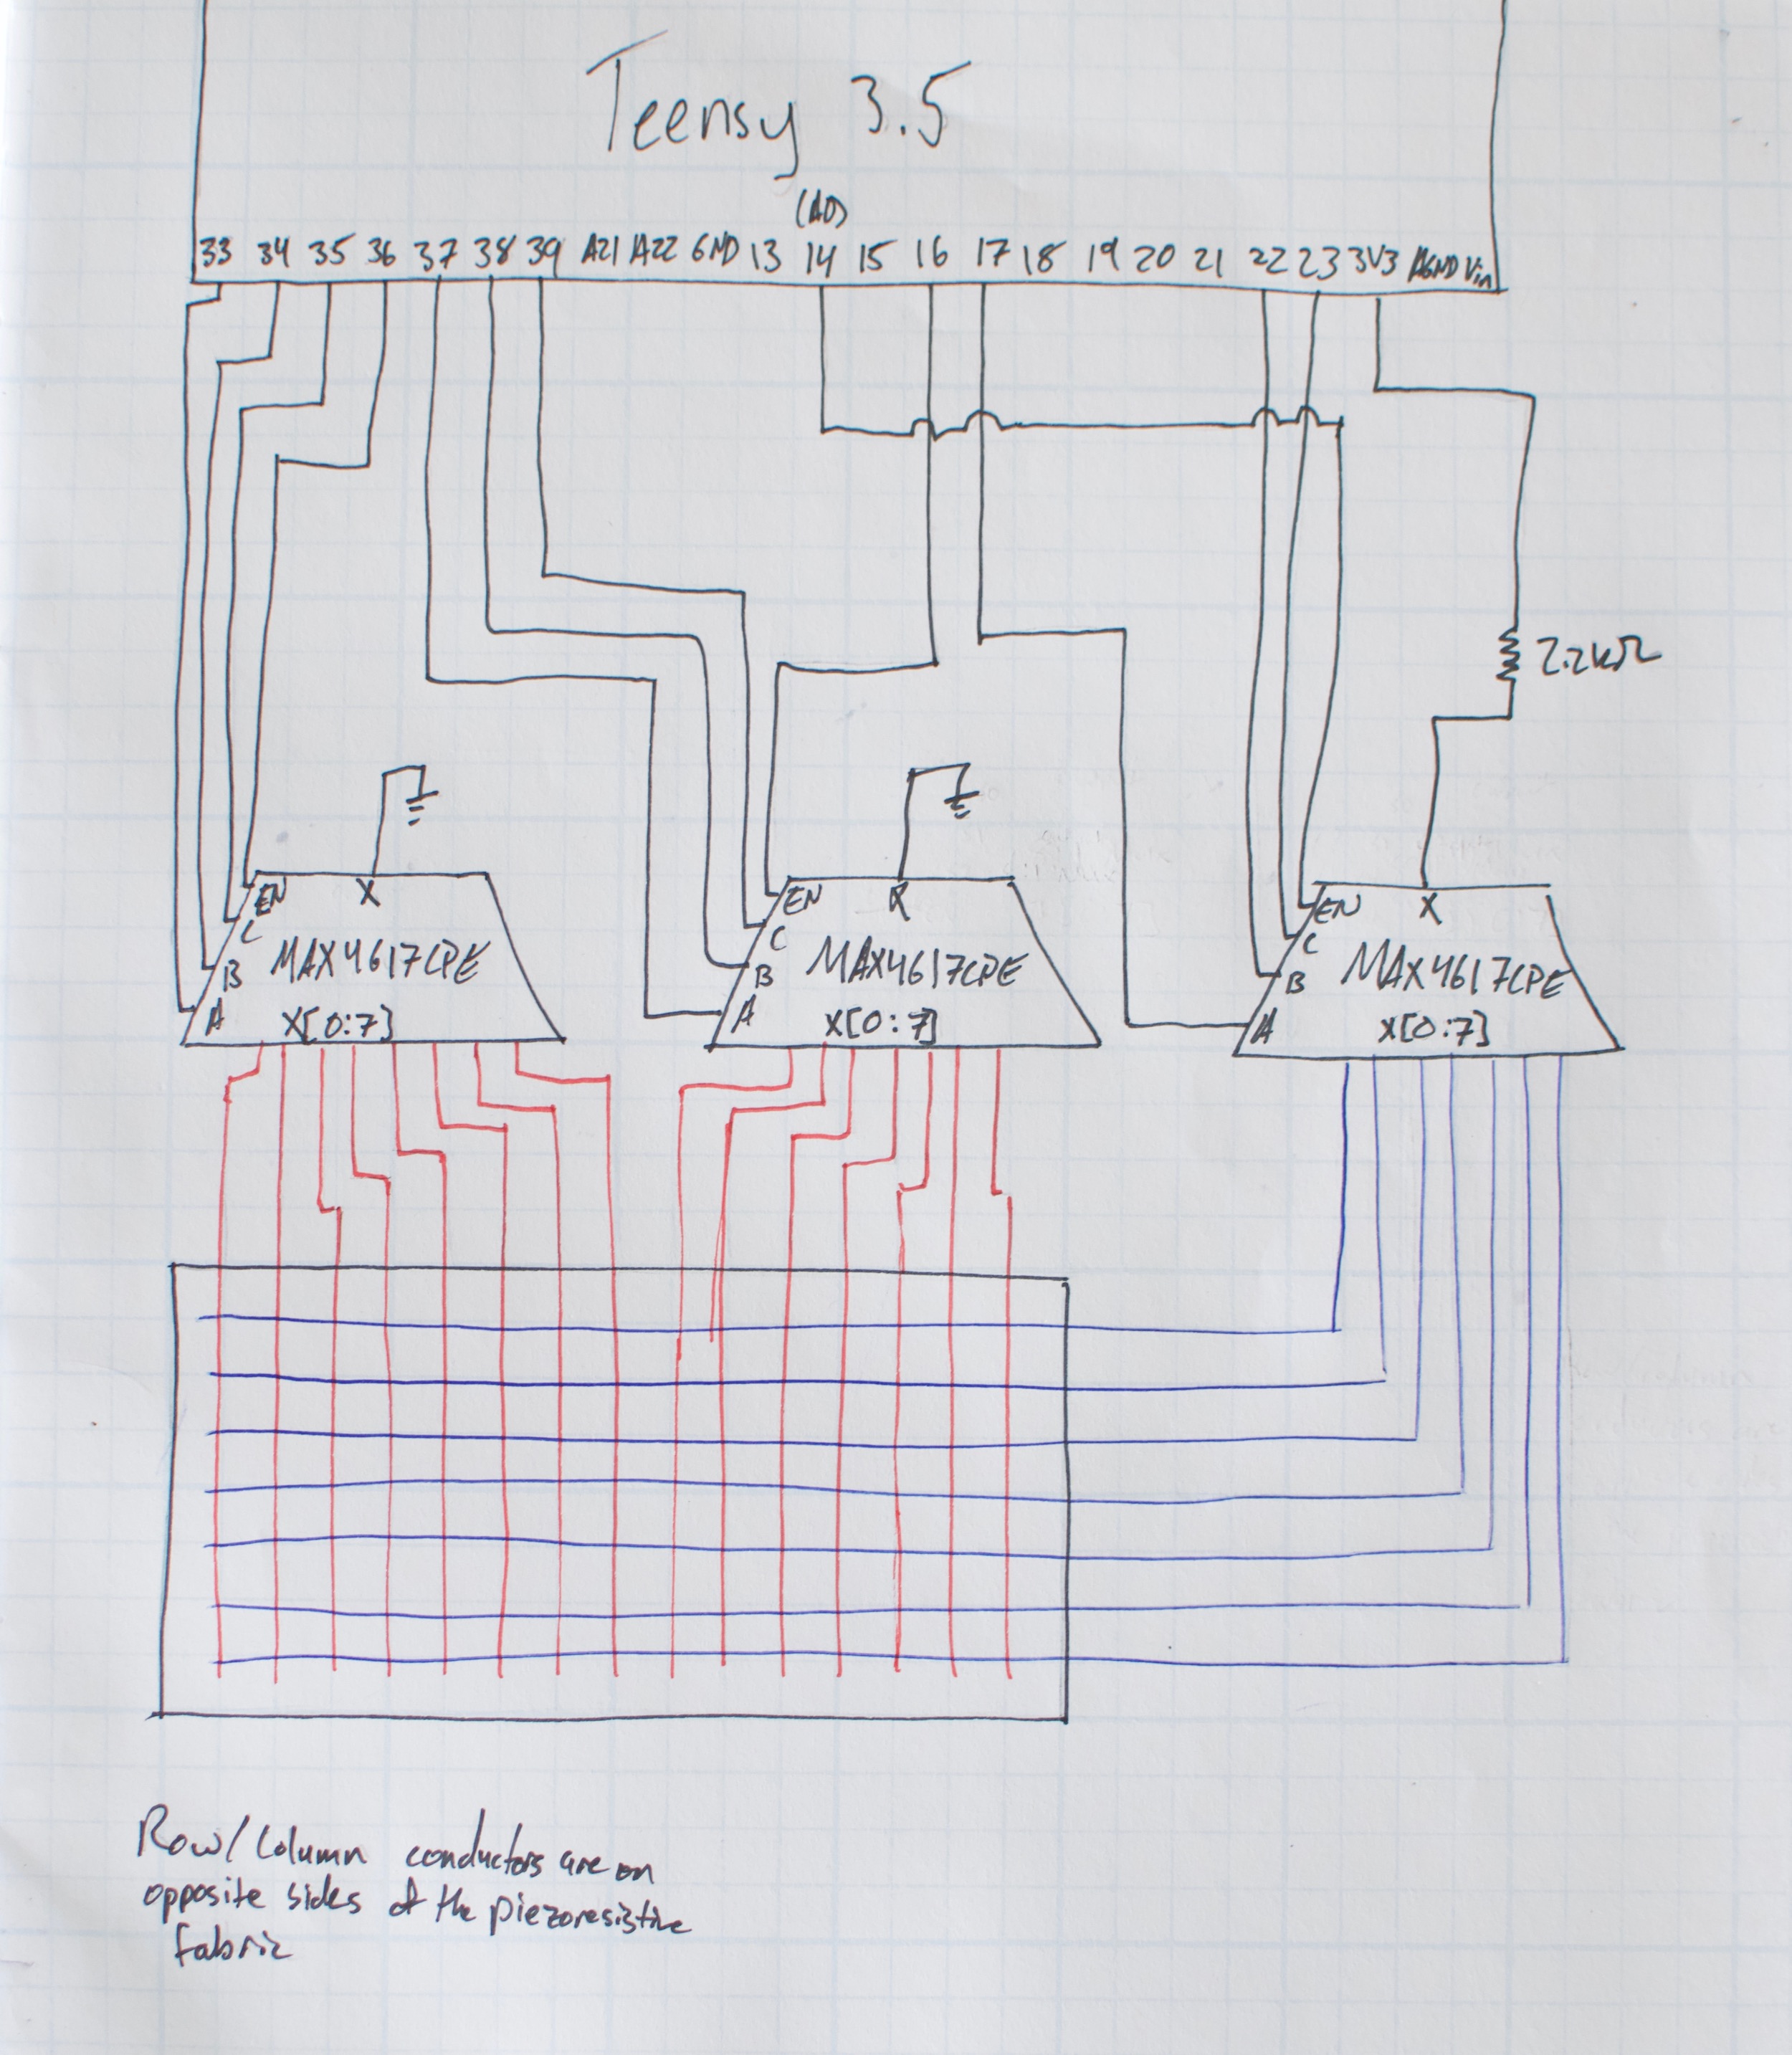 Teensy 3.5
(A0)
33 34 35 36 37 38 39 A21 A22 GND 13 14 15 16 17 18 19 20 21 22 23 3V3 AGND Vin
2.2kΩ
EN X EN X EN X
C C C
B MAX4617CPE B MAX4617CPE B MAX4617CPE
A X[0:7] A X[0:7] A X[0:7]
Row/Column conductors are on
opposite sides of the piezoresistive
fabric